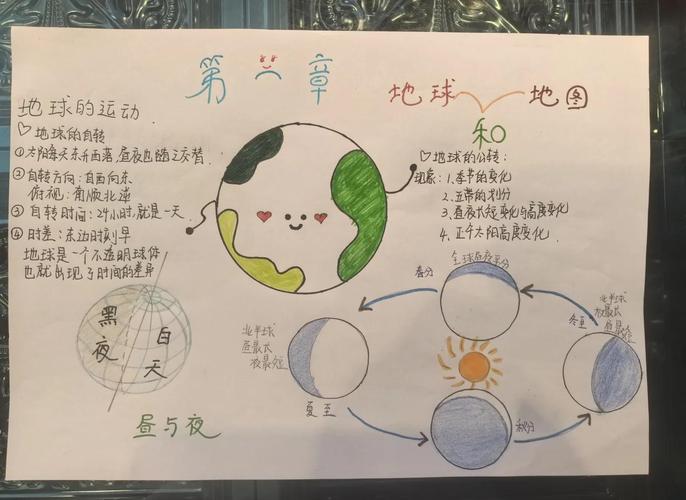 第一章
地球和地图
地球的运动
♡地球的自转
①太阳每天东升西落,昼夜也随之交替.
②自转方向:自西向东
俯视:南顺北逆
③自转时间:24小时,就是一天.
④时差:东边时刻早
地球是一个不透明球体
也就出现了时间的差异
黑夜
白天
昼与夜
♡地球的公转:
现象:1.季节的变化
2.五带的划分
3.昼夜长短变化与高度变化
4.正午太阳高度变化.
全球昼夜平分
春分
北半球
昼最长
夜最短
夏至
秋分
冬至
北半球
夜最长
昼最短